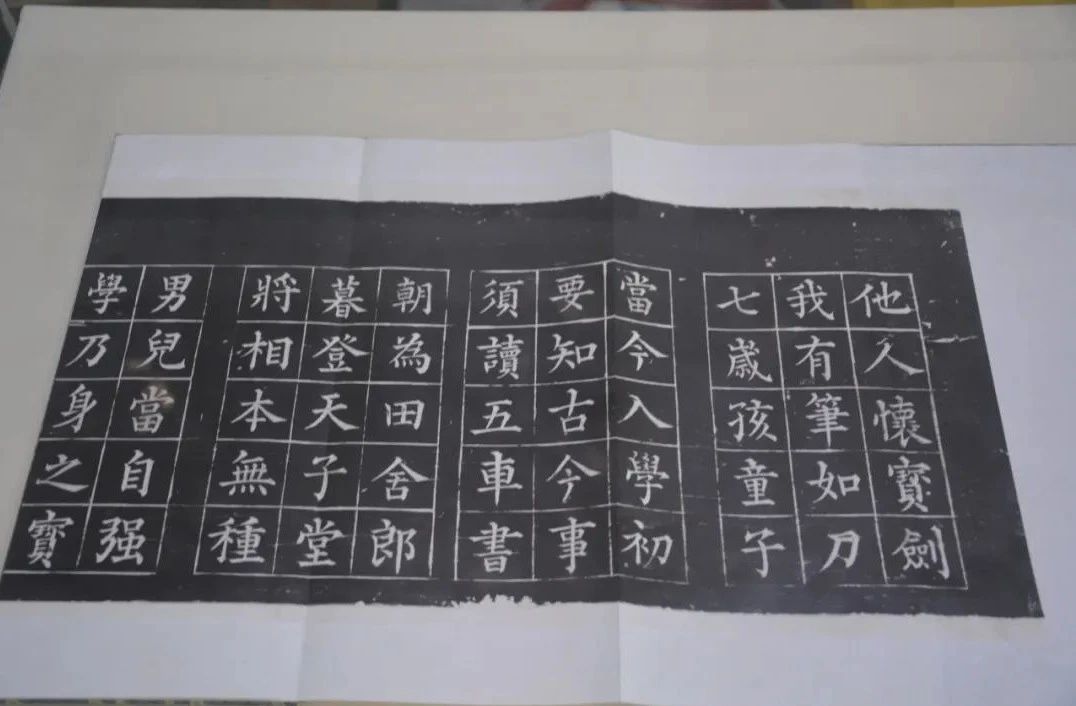 他人懷寶劍
我有筆如刀
七歲孩童子
當今入學初
要知古今事
須讀五車書
朝為田舍郎
暮登天子堂
將相本無種
男兒當自强
學乃身之寶